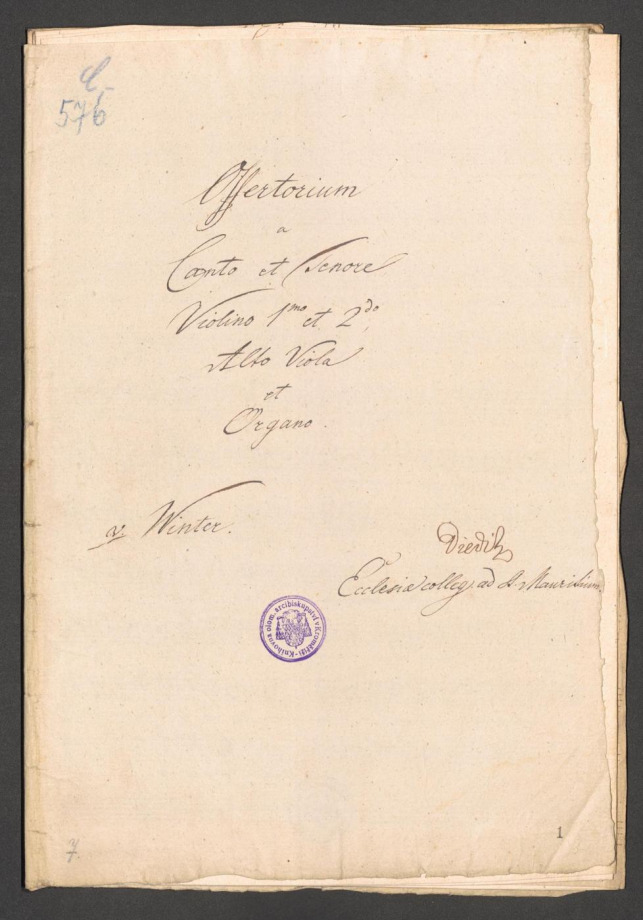 C
576
Offertorium
a
Canto et Tenore
Violino 1mo et 2do
Alto Viola
et
Organo.
v. Winter.
Ecclesiæ colleg. ad S. Mauritium.
Knihovna olom. arcibiskupství v Kroměříži
1
7.